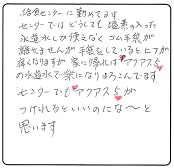 給食センターに勤めてます
センターではどうしても塩素の入った
水道水しか使えなく ゴム手袋が
離せませんが 手袋をしていると 上手が
痒くなりますが 家に帰れば アクアス5
の水道水で楽になりよろこんでます
センターでも アクアス5が
つけれるといいのになぁ〜と
思います